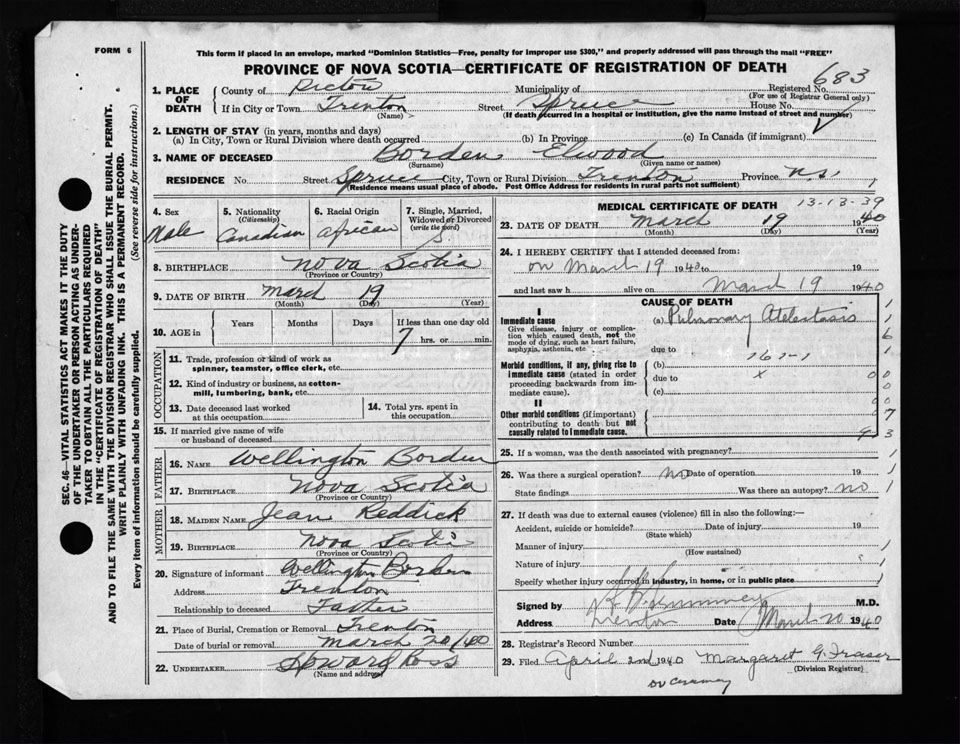 FORM 6
This form if placed in an envelope, marked "Dominion Statistics—Free, penalty for improper use $300," and properly addressed will pass through the mail "FREE"
PROVINCE OF NOVA SCOTIA—CERTIFICATE OF REGISTRATION OF DEATH
683
1. PLACE OF DEATH
County of Pictou Municipality of Registered No.
(For use of Registrar General only)
If in City or Town Trenton Street Spruce House No.
(Name) (If death occurred in a hospital or institution, give the name instead of street and number)
2. LENGTH OF STAY (in years, months and days)
(a) In City, Town or Rural Division where death occurred (b) In Province (c) In Canada (if immigrant)
3. NAME OF DECEASED Borden Elwood
(Surname) (Given name or names)
RESIDENCE No. Street Spruce City, Town or Rural Division Trenton Province N.S.
(Residence means usual place of abode. Post Office Address for residents in rural parts not sufficient)
4. Sex Male
5. Nationality (Citizenship) Canadian
6. Racial Origin African
7. Single, Married, Widowed or Divorced (write the word) S.
8. BIRTHPLACE Nova Scotia
(Province or Country)
9. DATE OF BIRTH March 19
(Month) (Day) (Year)
10. AGE in Years Months Days If less than one day old
7 hrs. or min.
OCCUPATION
11. Trade, profession or kind of work as spinner, teamster, office clerk, etc.
12. Kind of industry or business, as cotton-mill, lumbering, bank, etc.
13. Date deceased last worked at this occupation
14. Total yrs. spent in this occupation
15. If married give name of wife or husband of deceased
FATHER
16. NAME Wellington Borden
17. BIRTHPLACE Nova Scotia
(Province or Country)
MOTHER
18. MAIDEN NAME Jean Reddick
19. BIRTHPLACE Nova Scotia
(Province or Country)
20. Signature of informant Wellington Borden
Address Trenton
Relationship to deceased Father
21. Place of Burial, Cremation or Removal Trenton
Date of burial or removal March 20/40
22. UNDERTAKER
(Name and address)
MEDICAL CERTIFICATE OF DEATH 13-13-39
23. DATE OF DEATH March 19 1940
(Month) (Day) (Year)
24. I HEREBY CERTIFY that I attended deceased from:
on March 19 1940 to 19
and last saw h alive on March 19 1940
CAUSE OF DEATH
I
Immediate cause (a) Pulmonary Atelectasis
Give disease, injury or complication which caused death, not the mode of dying, such as heart failure, asphyxia, asthenia, etc.
due to
161-1
Morbid conditions, if any, giving rise to immediate cause (stated in order proceeding backwards from immediate cause).
(b)
due to x
(c)
II
Other morbid conditions (if important) contributing to death but not causally related to immediate cause.
25. If a woman, was the death associated with pregnancy?
26. Was there a surgical operation? no Date of operation 19
State findings Was there an autopsy? no
27. If death was due to external causes (violence) fill in also the following:—
Accident, suicide or homicide? Date of injury 19
(State which)
Manner of injury
(How sustained)
Nature of injury
Specify whether injury occurred in industry, in home, or in public place
Signed by M.D.
Address Trenton Date March 20 1940
28. Registrar's Record Number
29. Filed April 2nd 1940 Margaret G. Fraser
(Division Registrar)
SEC. 46—VITAL STATISTICS ACT MAKES IT THE DUTY
OF THE UNDERTAKER OR PERSON ACTING AS UNDER-
TAKER TO OBTAIN ALL THE PARTICULARS REQUIRED
IN THE "CERTIFICATE OF REGISTRATION OF DEATH"
AND TO FILE THE SAME WITH THE DIVISION REGISTRAR WHO SHALL ISSUE THE BURIAL PERMIT.
WRITE PLAINLY WITH UNFADING INK. THIS IS A PERMANENT RECORD.
Every item of information should be carefully supplied. (See reverse side for instructions.)